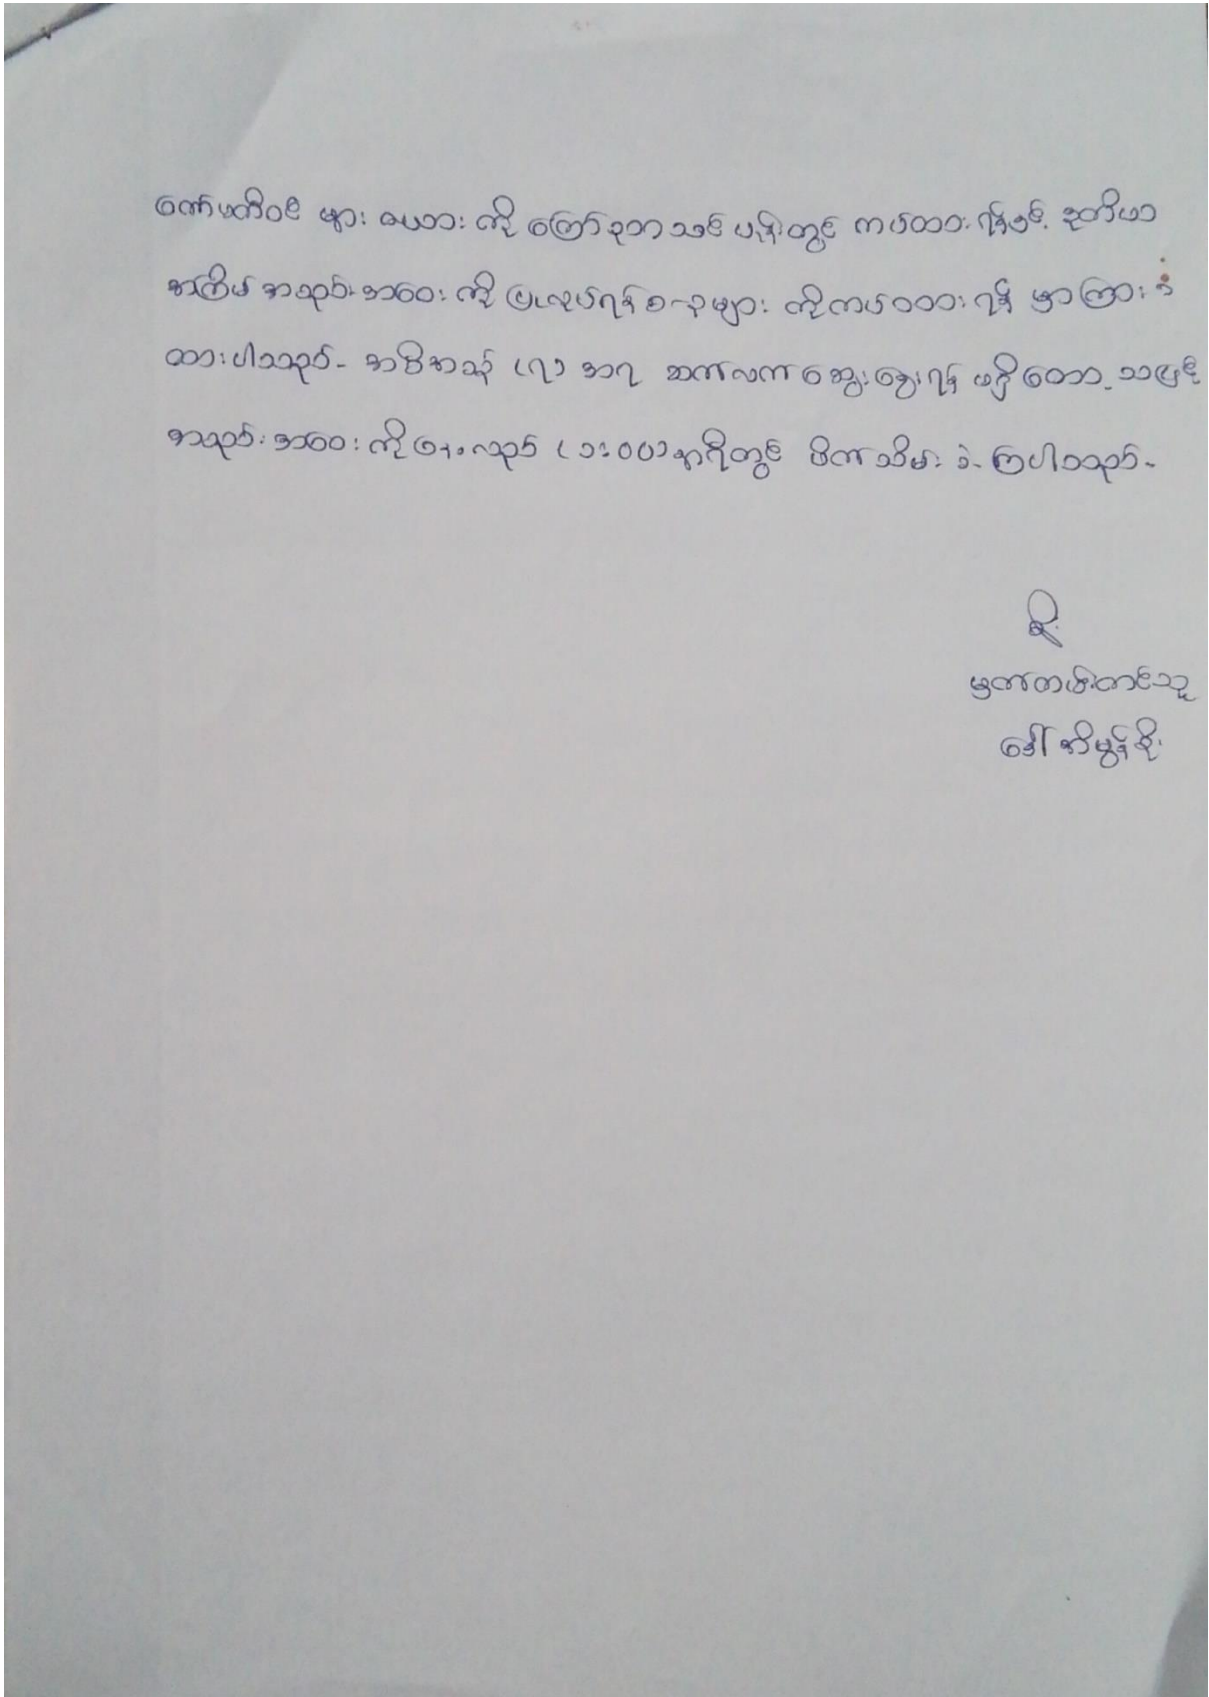 ကော်မတီဝင် များ ဇယား ကို ကြော်ငြာ သင် ပုန်းတွင် ကပ်ထား ရန်နှင့် ဒုတိယ
အကြိမ် အစည်း အဝေး ကို ပြုလုပ်ရန် စာများ ကိုကပ်ထား ရန် မှာကြား ခဲ့
ထားပါသည်- အစီအစဉ် (၇) အရ ဆက်လက် ဆွေးနွေး ရန် မရှိတော့ သဖြင့်
အစည်း အဝေး ကို နေ့လည် (၁း၀၀) နာရီတွင် ပိတ်သိမ်း ခဲ့ ကြပါသည်-
စိုး
မှတ်တမ်းတင်သူ
ဒေါ်အိမွန်စိုး